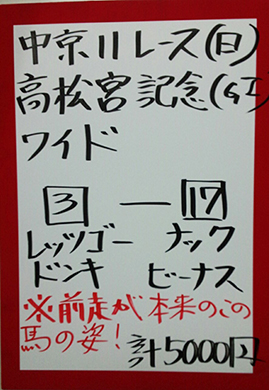 中京11レース(日)
高松宮記念(GI)
ワイド
3 — 17
レッツゴー ナック
ドンキ ビーナス
※前走が本来のこの
馬の姿!
計5000円